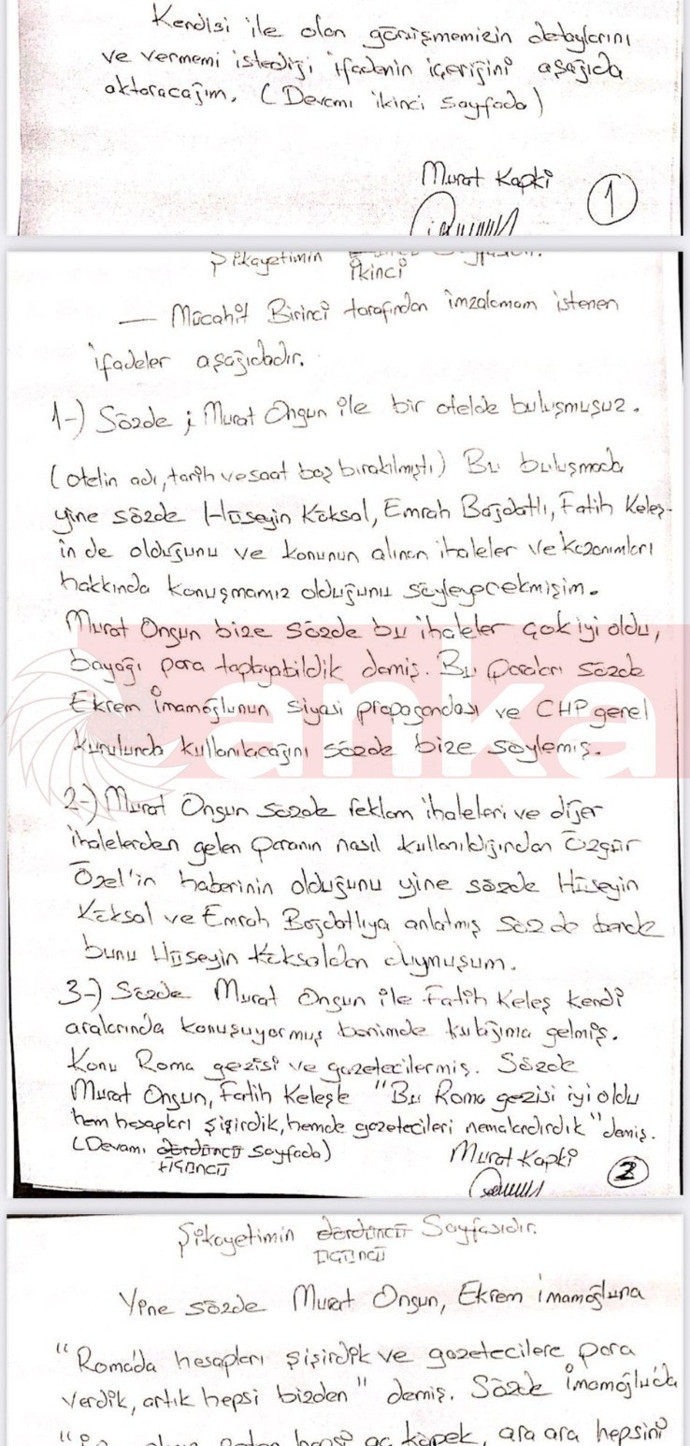 Kendisi ile olan görüşmemizin detaylarını
ve vermemi istediği ifadenin içeriğini aşağıda
aktaracağım. (Devamı ikinci sayfada)
Murat Kapki
1
Şikayetimin
ikinci
— Mücahit Birinci tarafından imzalamam istenen
ifadeler aşağıdadır.
1-) Sözde ; Murat Ongun ile bir otelde buluşmuşuz.
(otelin adı, tarih ve saat boş bırakılmıştı) Bu buluşmada
yine sözde Hüseyin Köksal, Emrah Bağdatlı, Fatih Keleş-
in de olduğunu ve konunun alınan ihaleler ve kazanımları
hakkında konuşmamız olduğunu söyleyecekmişim.
Murat Ongun bize sözde bu ihaleler çok iyi oldu,
bayağı para toplayabildik demiş. Bu paraları sözde
Ekrem İmamoğlunun siyasi propagandası ve CHP genel
kurulunda kullanılacağını sözde bize söylemiş.
anka
2-) Murat Ongun sözde reklam ihaleleri ve diğer
ihalelerden gelen paranın nasıl kullanıldığından Özgür
Özel'in haberinin olduğunu yine sözde Hüseyin
Köksal ve Emrah Bağdatlıya anlatmış sözde bende
bunu Hüseyin Köksaldan duymuşum.
3-) Sözde Murat Ongun ile Fatih Keleş kendi
aralarında konuşuyormuş benimde kulağıma gelmiş.
Konu Roma gezisi ve gazetecilermiş. Sözde
Murat Ongun, Fatih Keleşle "Bu Roma gezisi iyi oldu
hem hesapları şişirdik, hemde gazetecileri nemalandırdık" demiş.
(Devamı dördüncü sayfada)
üçüncü
Murat Kapki
2
Şikayetimin dördüncü Sayfasıdır.
üçüncü
Yine sözde Murat Ongun, Ekrem İmamoğluna
"Roma'da hesapları şişirdik ve gazetecilere para
verdik, artık hepsi bizden" demiş. Sözde İmamoğlu'da
hepsi aç köpek, ara ara hepsini